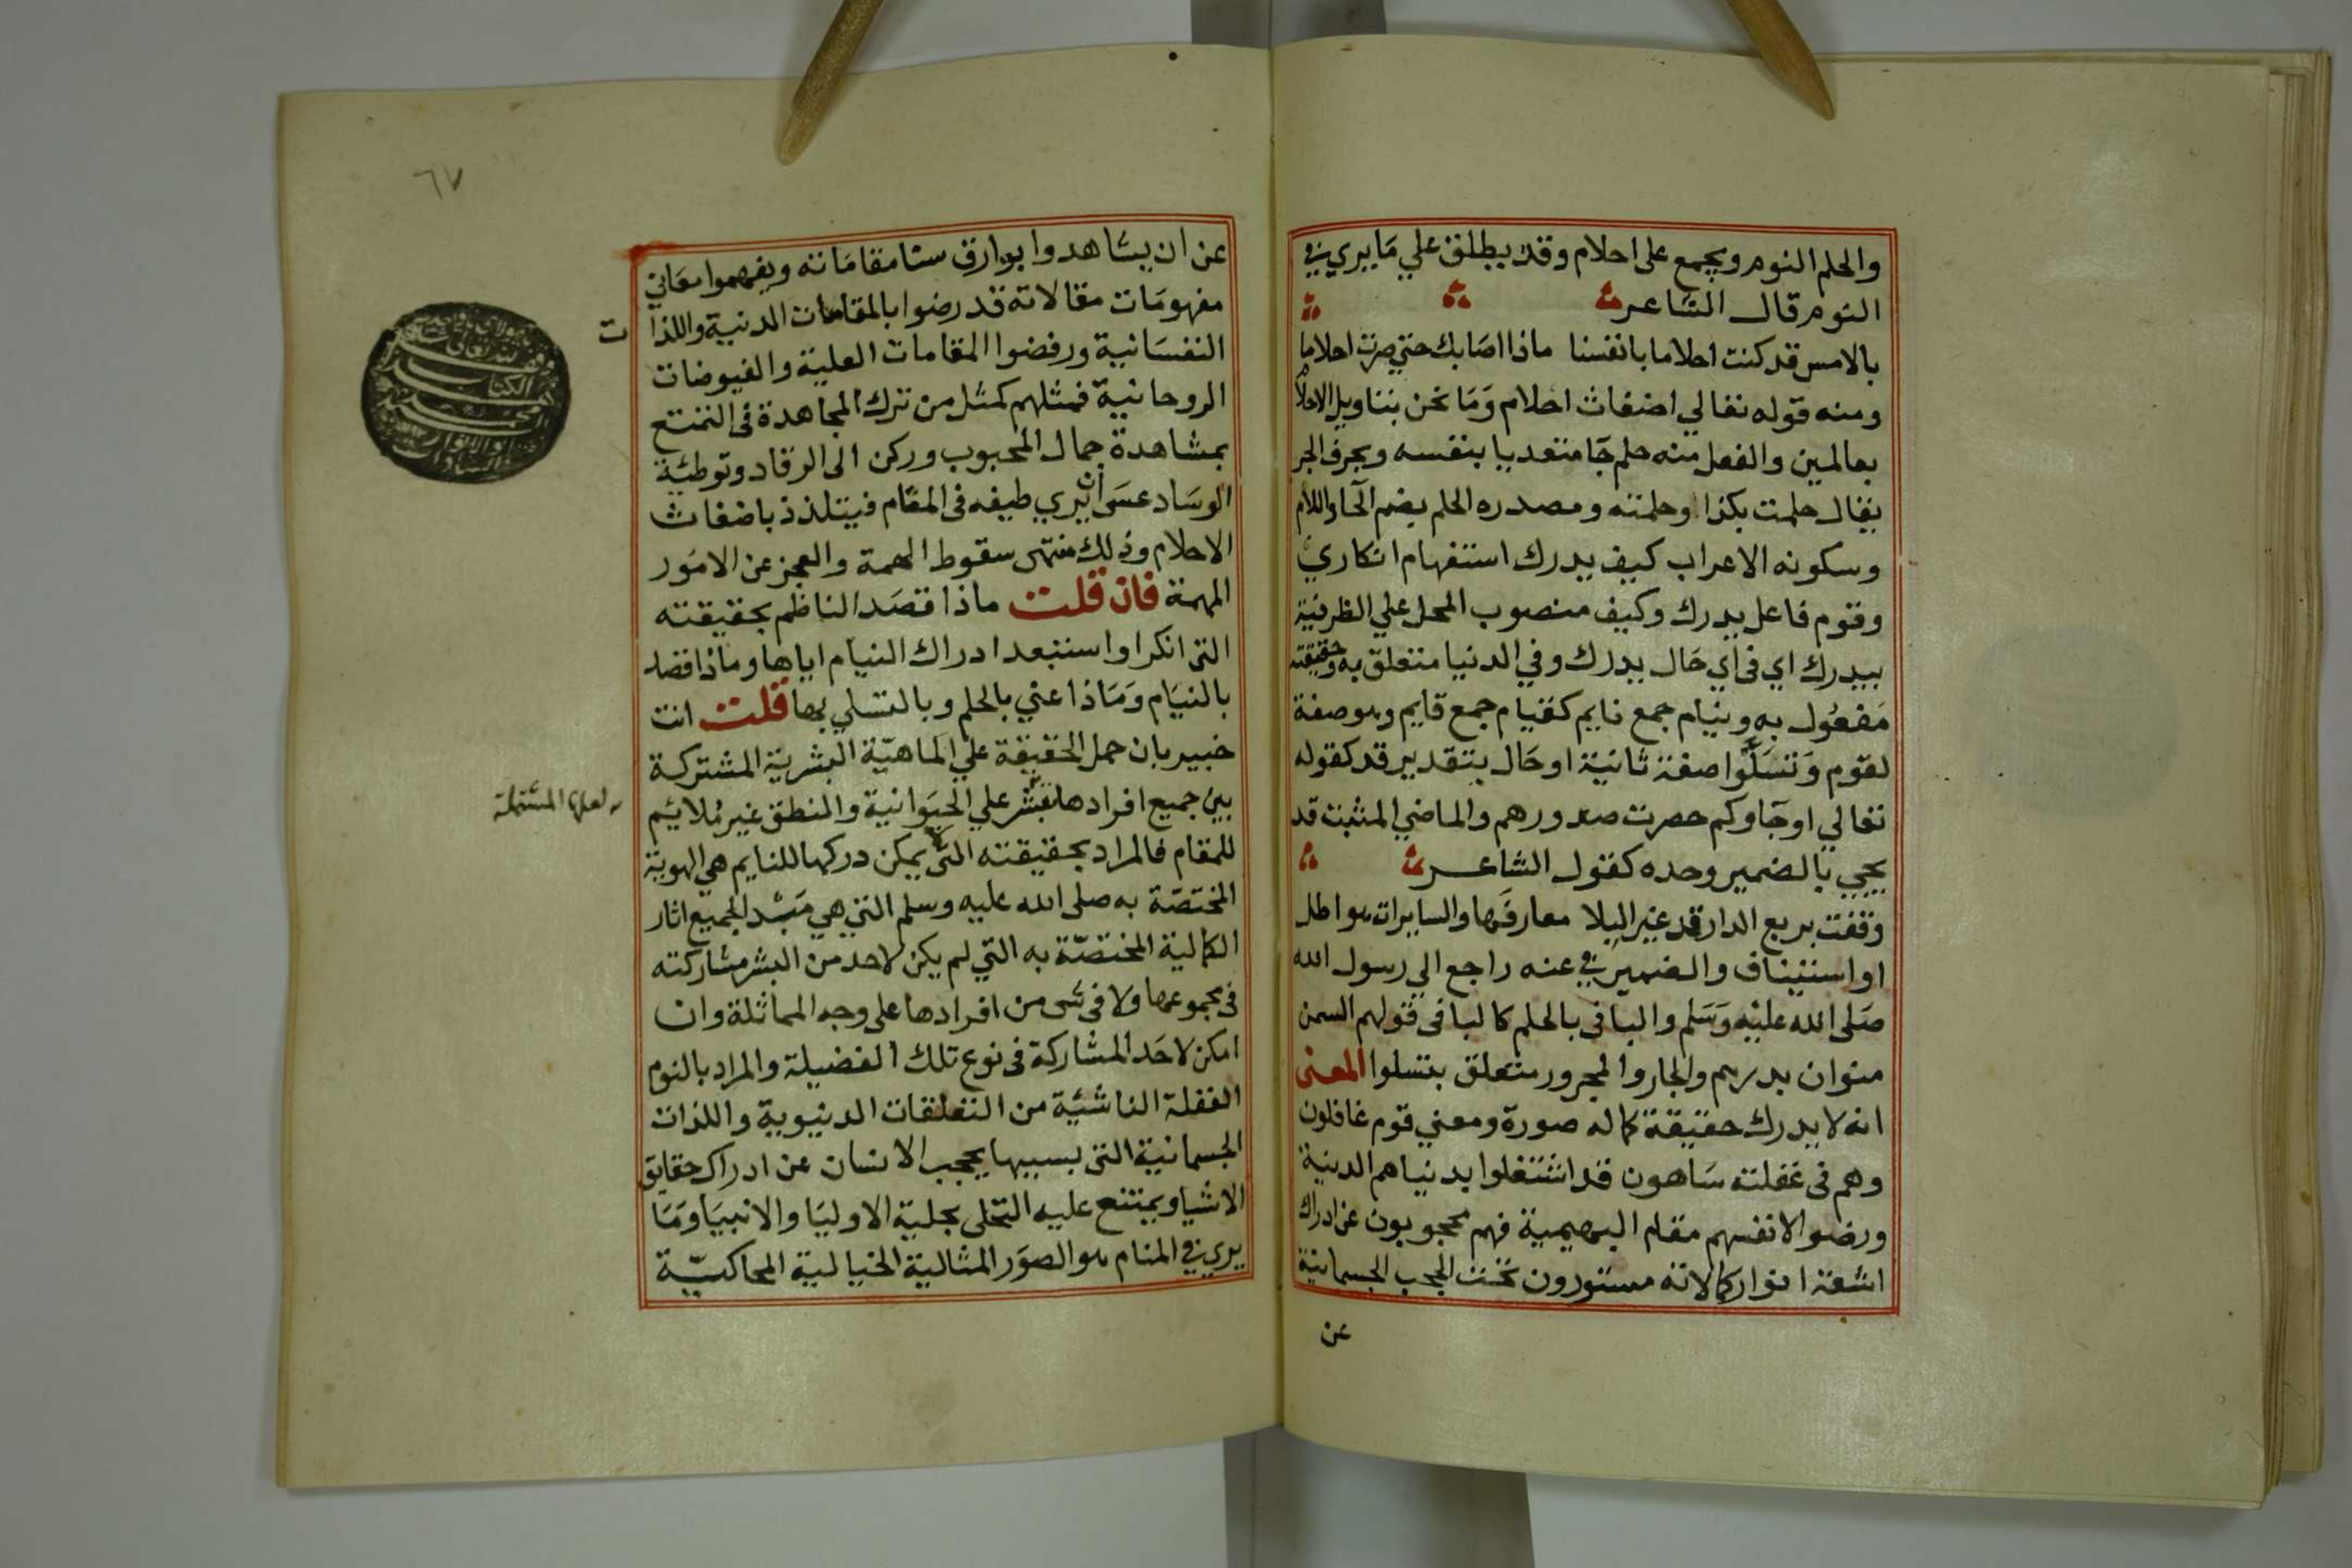 والحلم النوم ويجمع على احلام وقد يطلق علي مَا يري في
النوم قال الشاعر
بالامس قد كنت احلاما بانفسنا ماذا اصَابك حتي صرت احلاما
ومنه قوله تعالي اضغاث احلام وَمَا نحن بتاويل الاحلام
بعالمين والفعل منه حلم جَا متعديا بنفسه وبحرف الجر
يقال حلمت بكذا وحلمته ومصدره الحلم بضم الحَا واللام
وسكونه الاعراب كيف يدرك استفهام انكاري
وقوم فاعل يدرك وكيف منصوب المحل علي الظرفية
بيدرك اي في اي حَال يدرك وفي الدنيا متعلق به وحقيقته
مَفعُول به ونيام جمع نايم كقيام جمع قايم وهو صفة
لقوم وَتسَلَّوا صفة ثانية او حَال بتقدير قد كقوله
تعالي او جَاوكم حصرت صدورهم والماضي المثبت قد
يجيي بالضمير وحده كقول الشاعر
وقفت بربع الدار قد غير البلا معارفَها والسايرات هواطل
او استيناف والضمير في عنه راجع الي رسول الله
صَلى الله عليْه وَسَلم والبا في بالحلم كالبا في قولهم السمن
منوان بدرهم والجار والمجرور متعلق بتسلوا المعنى
انه لا يدرك حقيقة كماله صورة ومعني قوم غافلون
وهم في غفلته سَاهون قد اشتغلوا بدنياهم الدنية
ورضوا لانفسهم مقام البهيمية فهم محجوبون عن ادراك
اشعة انوار كمالاته مستورون تحت الحجب الجسمانية
عن
٦٧
عن ان يشاهدوا بوارق سنا مقامَاته ويفهموا معَاني
مفهومَات مقالاته قد رضوا بالمقامات الدنية واللذات
النفسَانية ورفضوا المقامات العلية والفيوضات
الروحانية فمثلهم كمثل من ترك المجاهدة في التمتع
بمشاهدة جمال المحبوب وركن الى الرقاد وتوطئة
الوسَاد عسَى ان يري طيفه في المقام فيتلذذ باضغاث
الاحلام وذلك منتهى سقوط الهمة والعجز عن الامَور
المهمة فان قلت ماذا قصَد الناظم بحقيقته
التى انكر او استبعد ادراك النيام اياها وماذا قصد
بالنيَام وَمَاذا عني بالحلم وبالتسلي بها قلت انت
خبير بان حمل الحقيقة علي الماهيّة البشرية المشتركة
بين جميع افرادها علي الحيَوانية والمنطق غير مُلايم
لعلها المشتملة
للمقام فالمراد بحقيقته التي يمكن دركها للنايم هي الهوية
المختصّة به صلى الله عليه وسلم التي هي لجميع اثار
الكمالية المختصّة به التي لم يكن لاحد من البشر مشاركته
في مجموعها ولا في شي من افرادها على وجه المماثلة وان
امكن لاحَد المشاركة في نوع تلك الفضيلة والمراد بالنوم
الغفلة الناشئة من التعلقات الدنيوية واللذات
الجسمانية التى بسببها يحجب الانسان عن ادراك حقايق
الاشيا ويمتنع عليه التحلى بحلية الاوليَا والانبيَا وَمَا
يري في المنام هو الصوَر المثالية الخيالية المحاكيّة